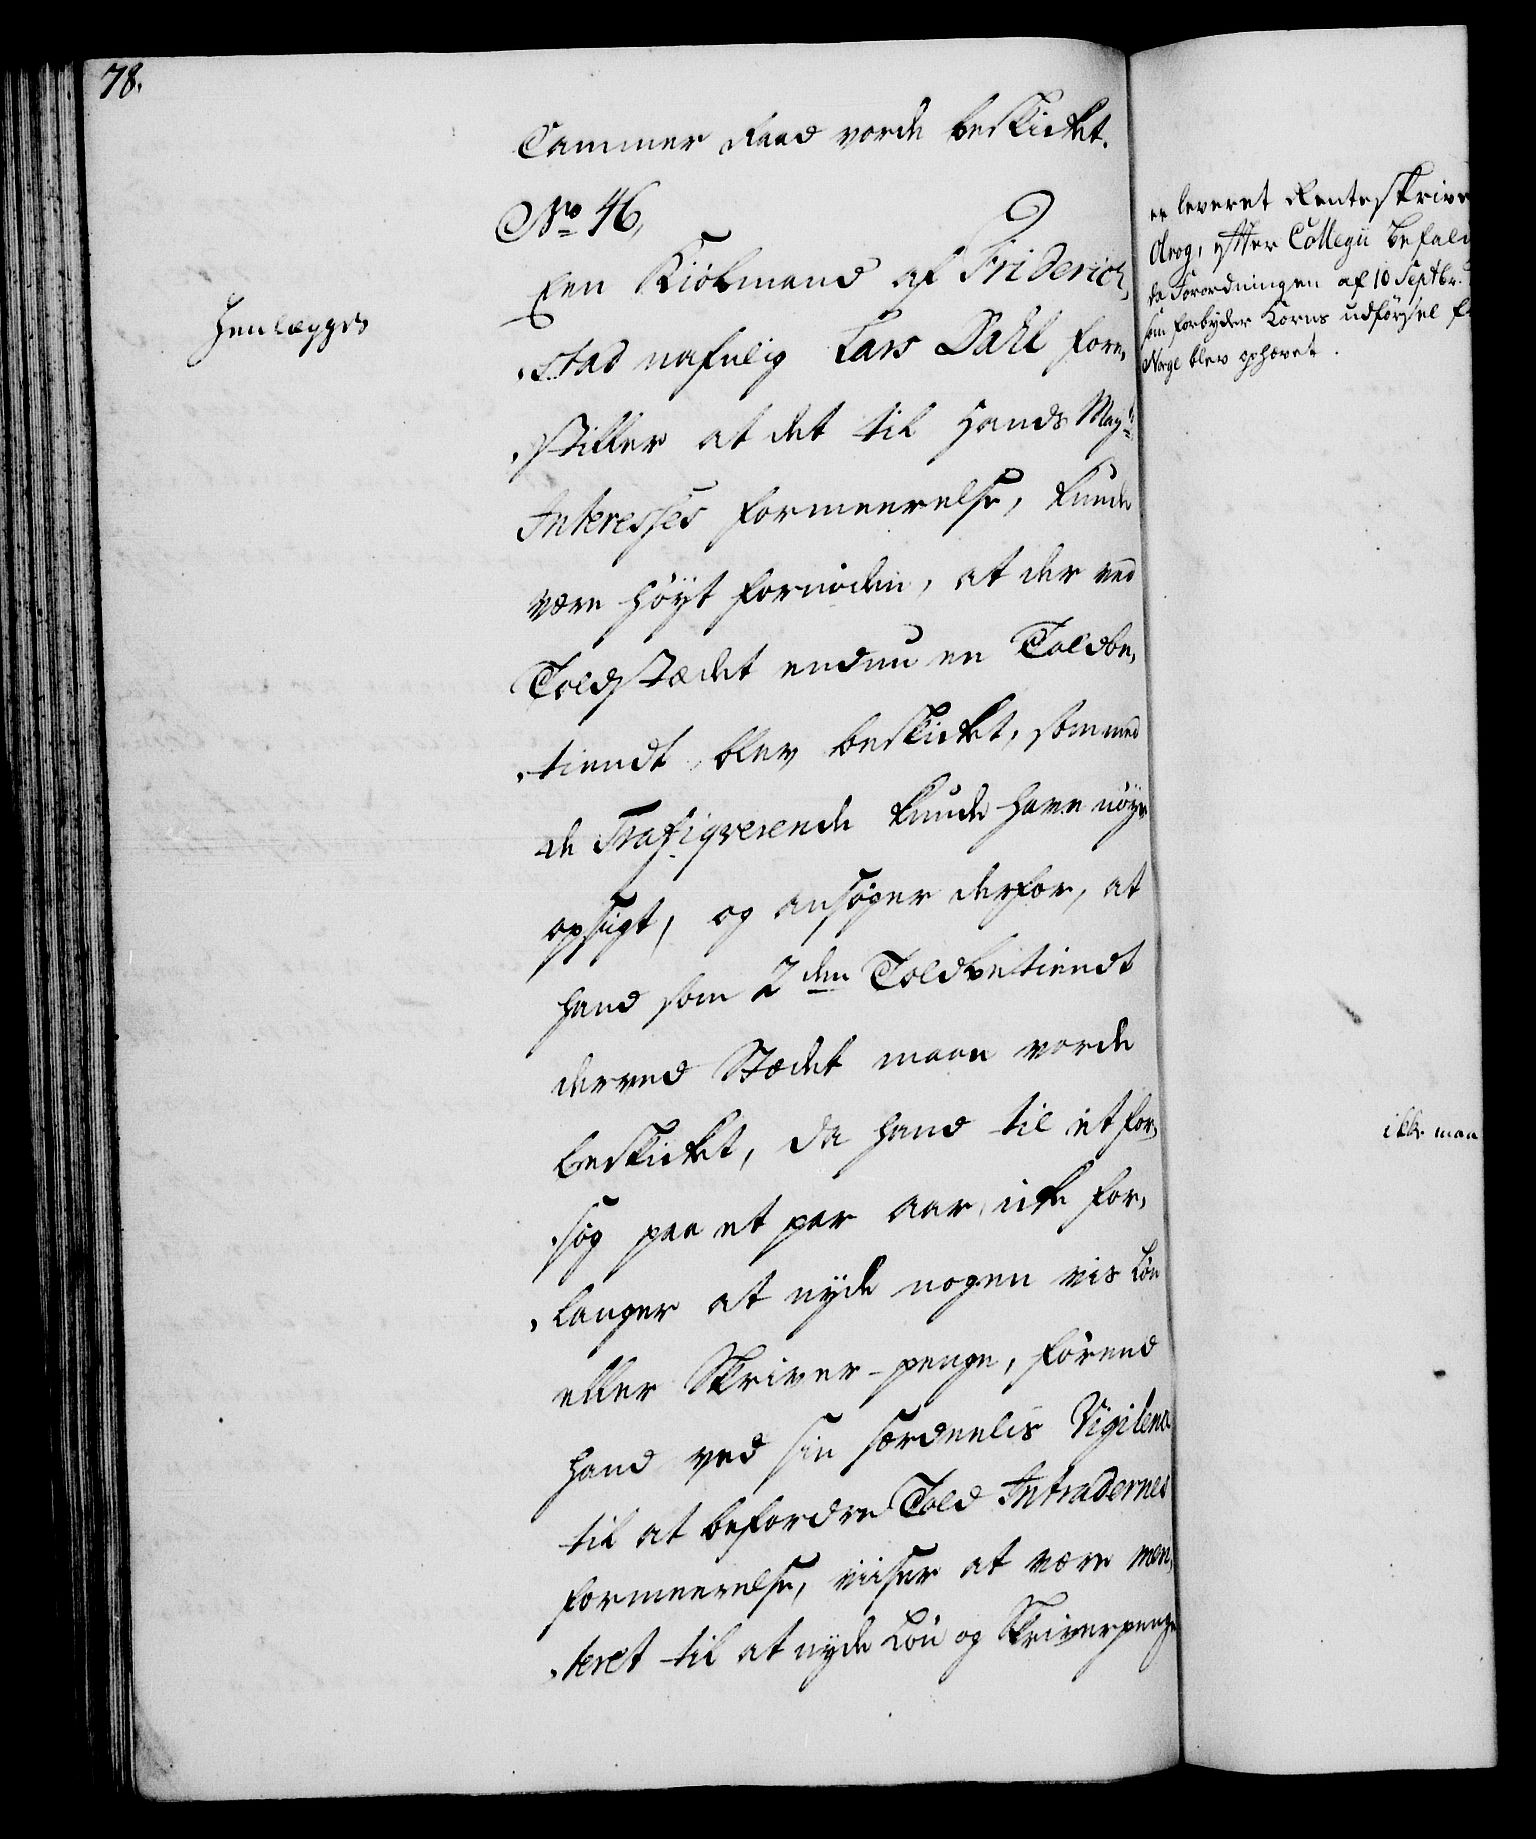 78.
Cammer Raad vorde beskicket.
No 46,
Henlægges
Een Kiöbmand af Friderich,
,stad nafnlig Lars Dahl fore,
,stiller at det til Hands Mayts
Interesses formeerelse, kunde
være höyt fornöden, at der ved
Toldstædet endnu en Toldbe,
,tiendt blev beskicket, som med
de Trafiqverende kunde have nöye
opsigt, og ansöger derfor, at
hand som 2den Toldbetiendt
derved Stædet maae vorde
beskicket, da hand til et for,
,søg paa et par aar, icke for,
,langer at nyde nogen vis Lön
eller Skriver-penge, förend
hand ved sin særdeelis Vigilence
til at befordre Told Intradernes
formeerelse, viiser at være meri,
,teret til at nyde Lön og Skriverpenge
er leveret Renteskriver
Krog, efter Collegii befal
da Forordningen af 10 Septbr.
som forbyder Korns udförsel f
Norge blev ophævet.
ikke maa